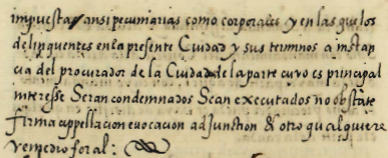 impuestas ansi pecuniarias como corporales y en las que los
delinquentes en la presente Ciudad y sus terminos a instan
cia del procurador de la Ciudad o de la parte cuyo es principal
interesse Seran condemnados Sean executados no obstate
firma appellacion evocacion adjunction & otro qualquiere
remedio foral :